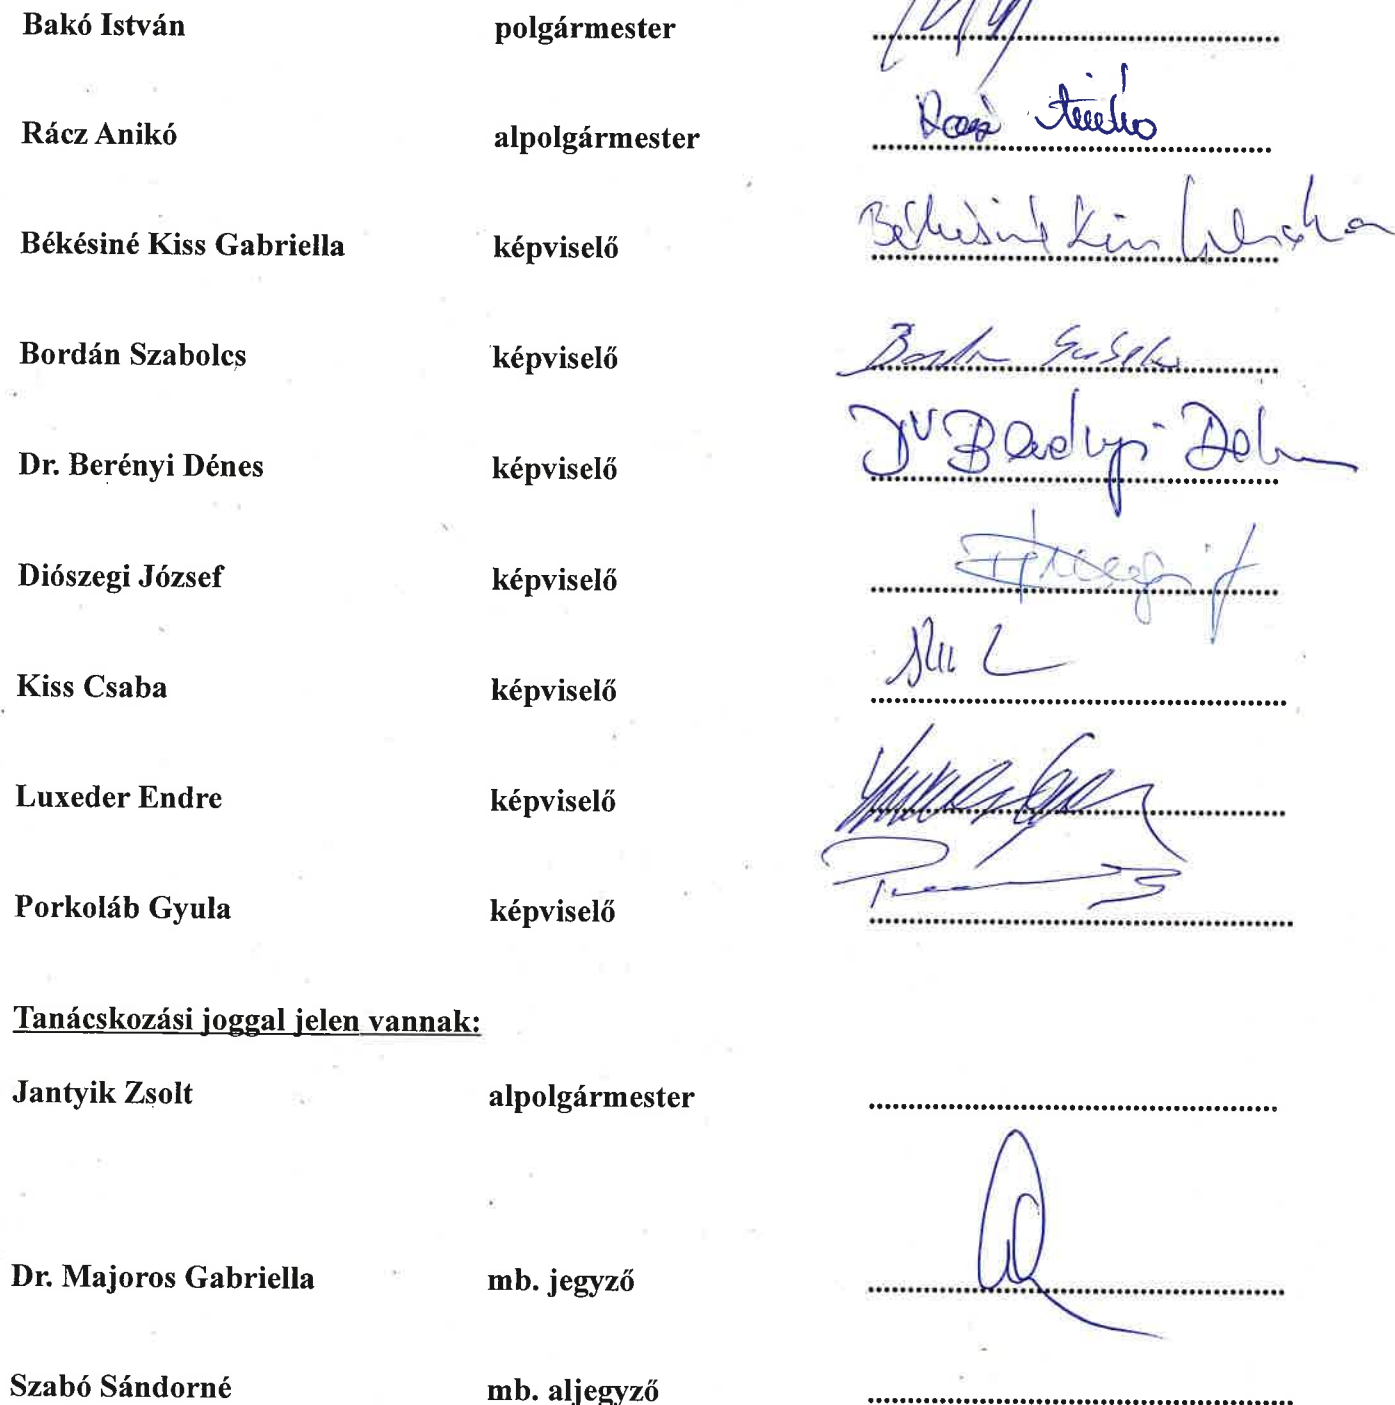 Bakó István polgármester
Rácz Anikó alpolgármester
Békésiné Kiss Gabriella képviselő Békésiné Kiss Gabriella
Bordán Szabolcs képviselő
Dr. Berényi Dénes képviselő
Diószegi József képviselő
Kiss Csaba képviselő
Luxeder Endre képviselő
Porkoláb Gyula képviselő
Tanácskozási joggal jelen vannak:
Jantyik Zsolt alpolgármester
Dr. Majoros Gabriella mb. jegyző
Szabó Sándorné mb. aljegyző